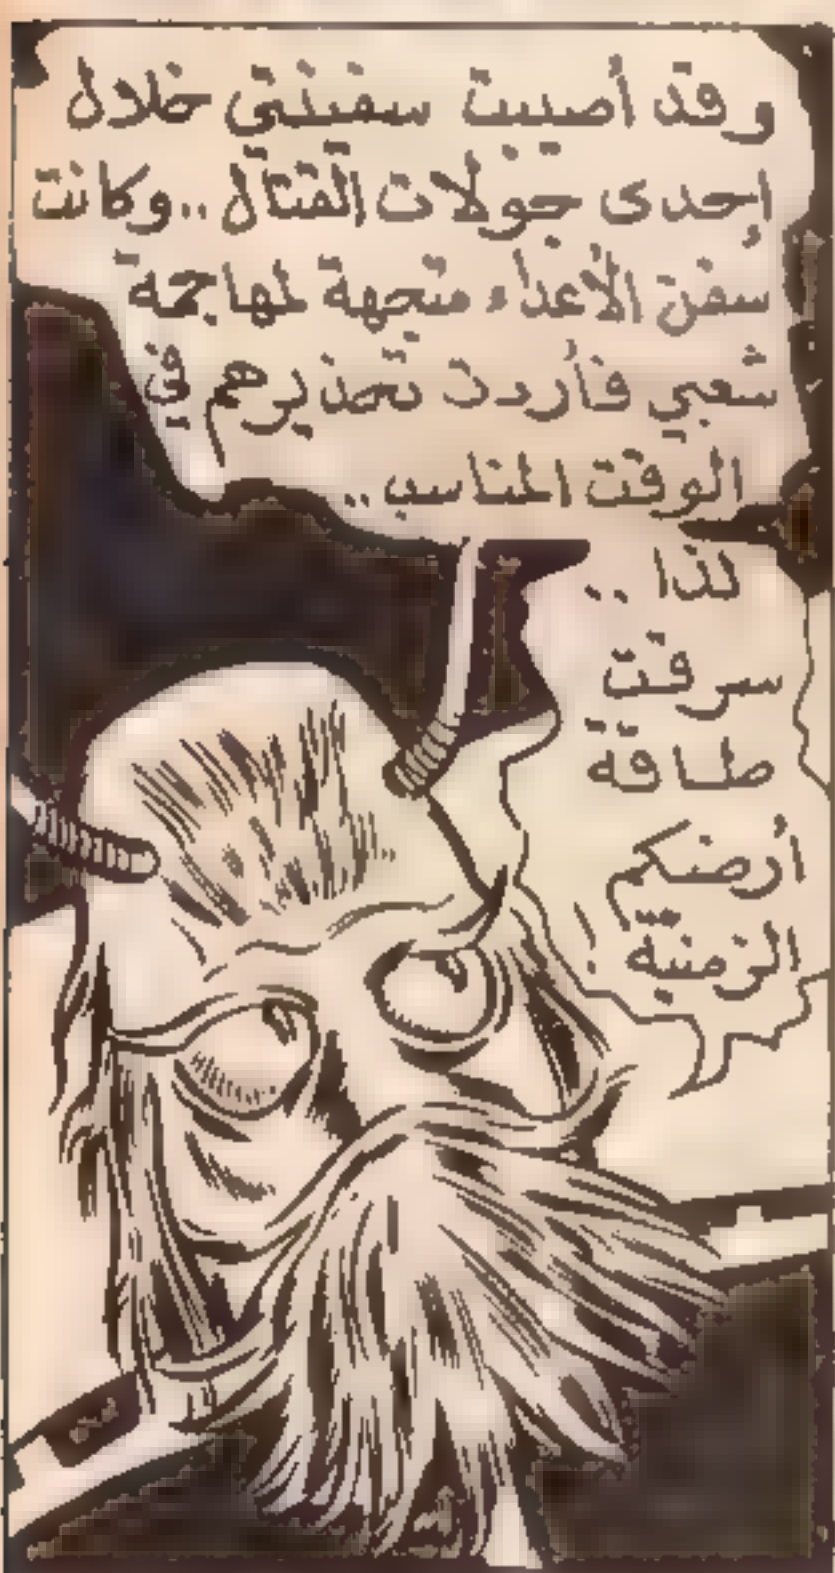 وقد أصيبت سفينتي خلال
إحدى جولات القتال .. وكانت
سفن الأعداء متجهة لمهاجمة
شعبي فأردت تحذيرهم في
الوقت المناسب ..
لذا ..
سرقت
طاقة
أرضكم
الزمنية !